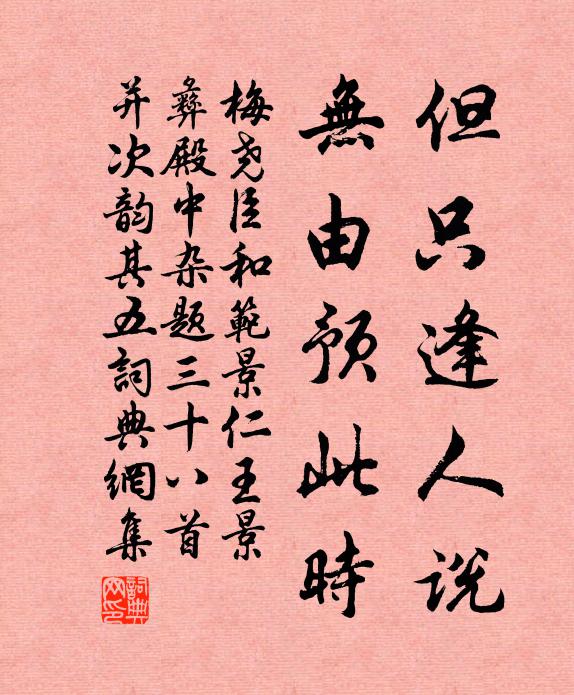 但只逢人说
無由预此時
梅尧臣和範景仁王景
彝殿中杂题三十八首
并次韵其五詞典網集
詞典
网印